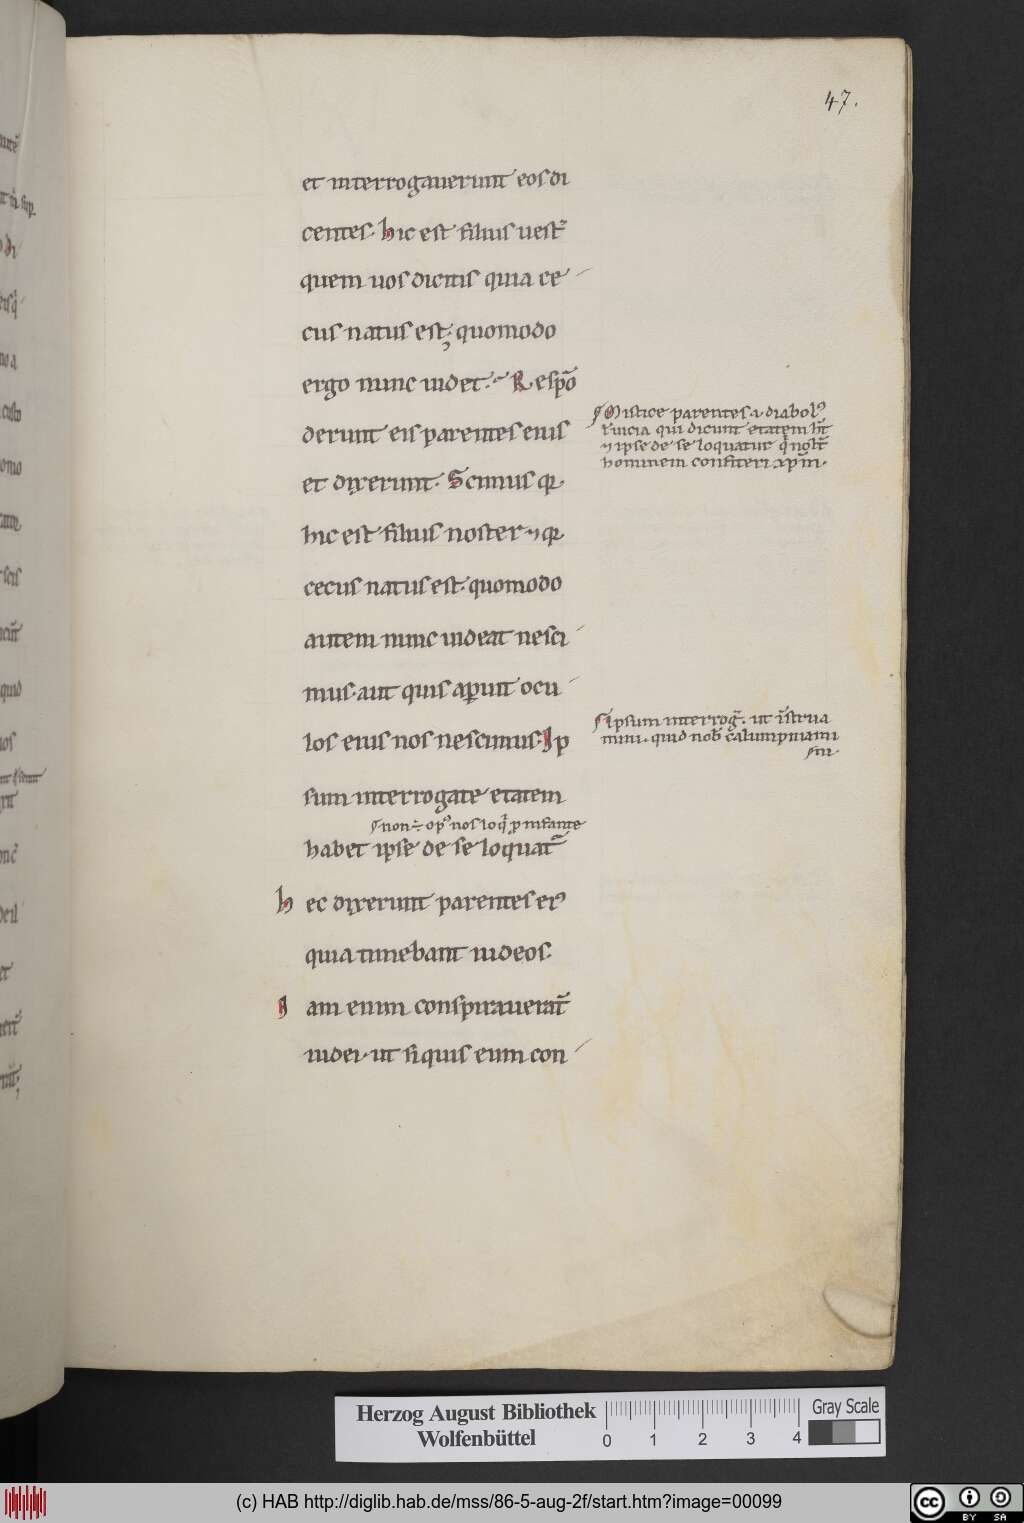 47.
et interrogauerunt eos di
centes. Hic est filius uestr̄
quem uos dicitis quia ce
cus natus est; quomodo
ergo nunc uidet. Respō
derunt eis parentes eius
et dixerunt. Scimus qꝛ
hic est filius noster ⁊ qꝛ
cecus natus est. quomodo
autem nunc uideat nesci
mus. aut quis aꝑuit ocu
los eius nos nescimus. Ip
sum interrogate etatem
non ÷ opꝰ nos loq̄ ꝑ infante
habet ipse de se loquat᷑
Hec dixerunt parentes eiꝰ
quia timebant iudeos.
Iam enim conspirauerāt
iudei. ut si quis eum con
Mistice parentes .i. diabolꝰ
ł uicia qui dicunt etatem hт̄
⁊ ipse de se loquatur
hominem confiteri xp̄m.
Ipsum interroḡ. ut īstrua
mini. quid nob̄ calumpniami
ni.
Herzog August Bibliothek
Wolfenbüttel
0 1 2 3 4
Gray Scale
(c) HAB http://diglib.hab.de/mss/86-5-aug-2f/start.htm?image=00099
cc BY SA